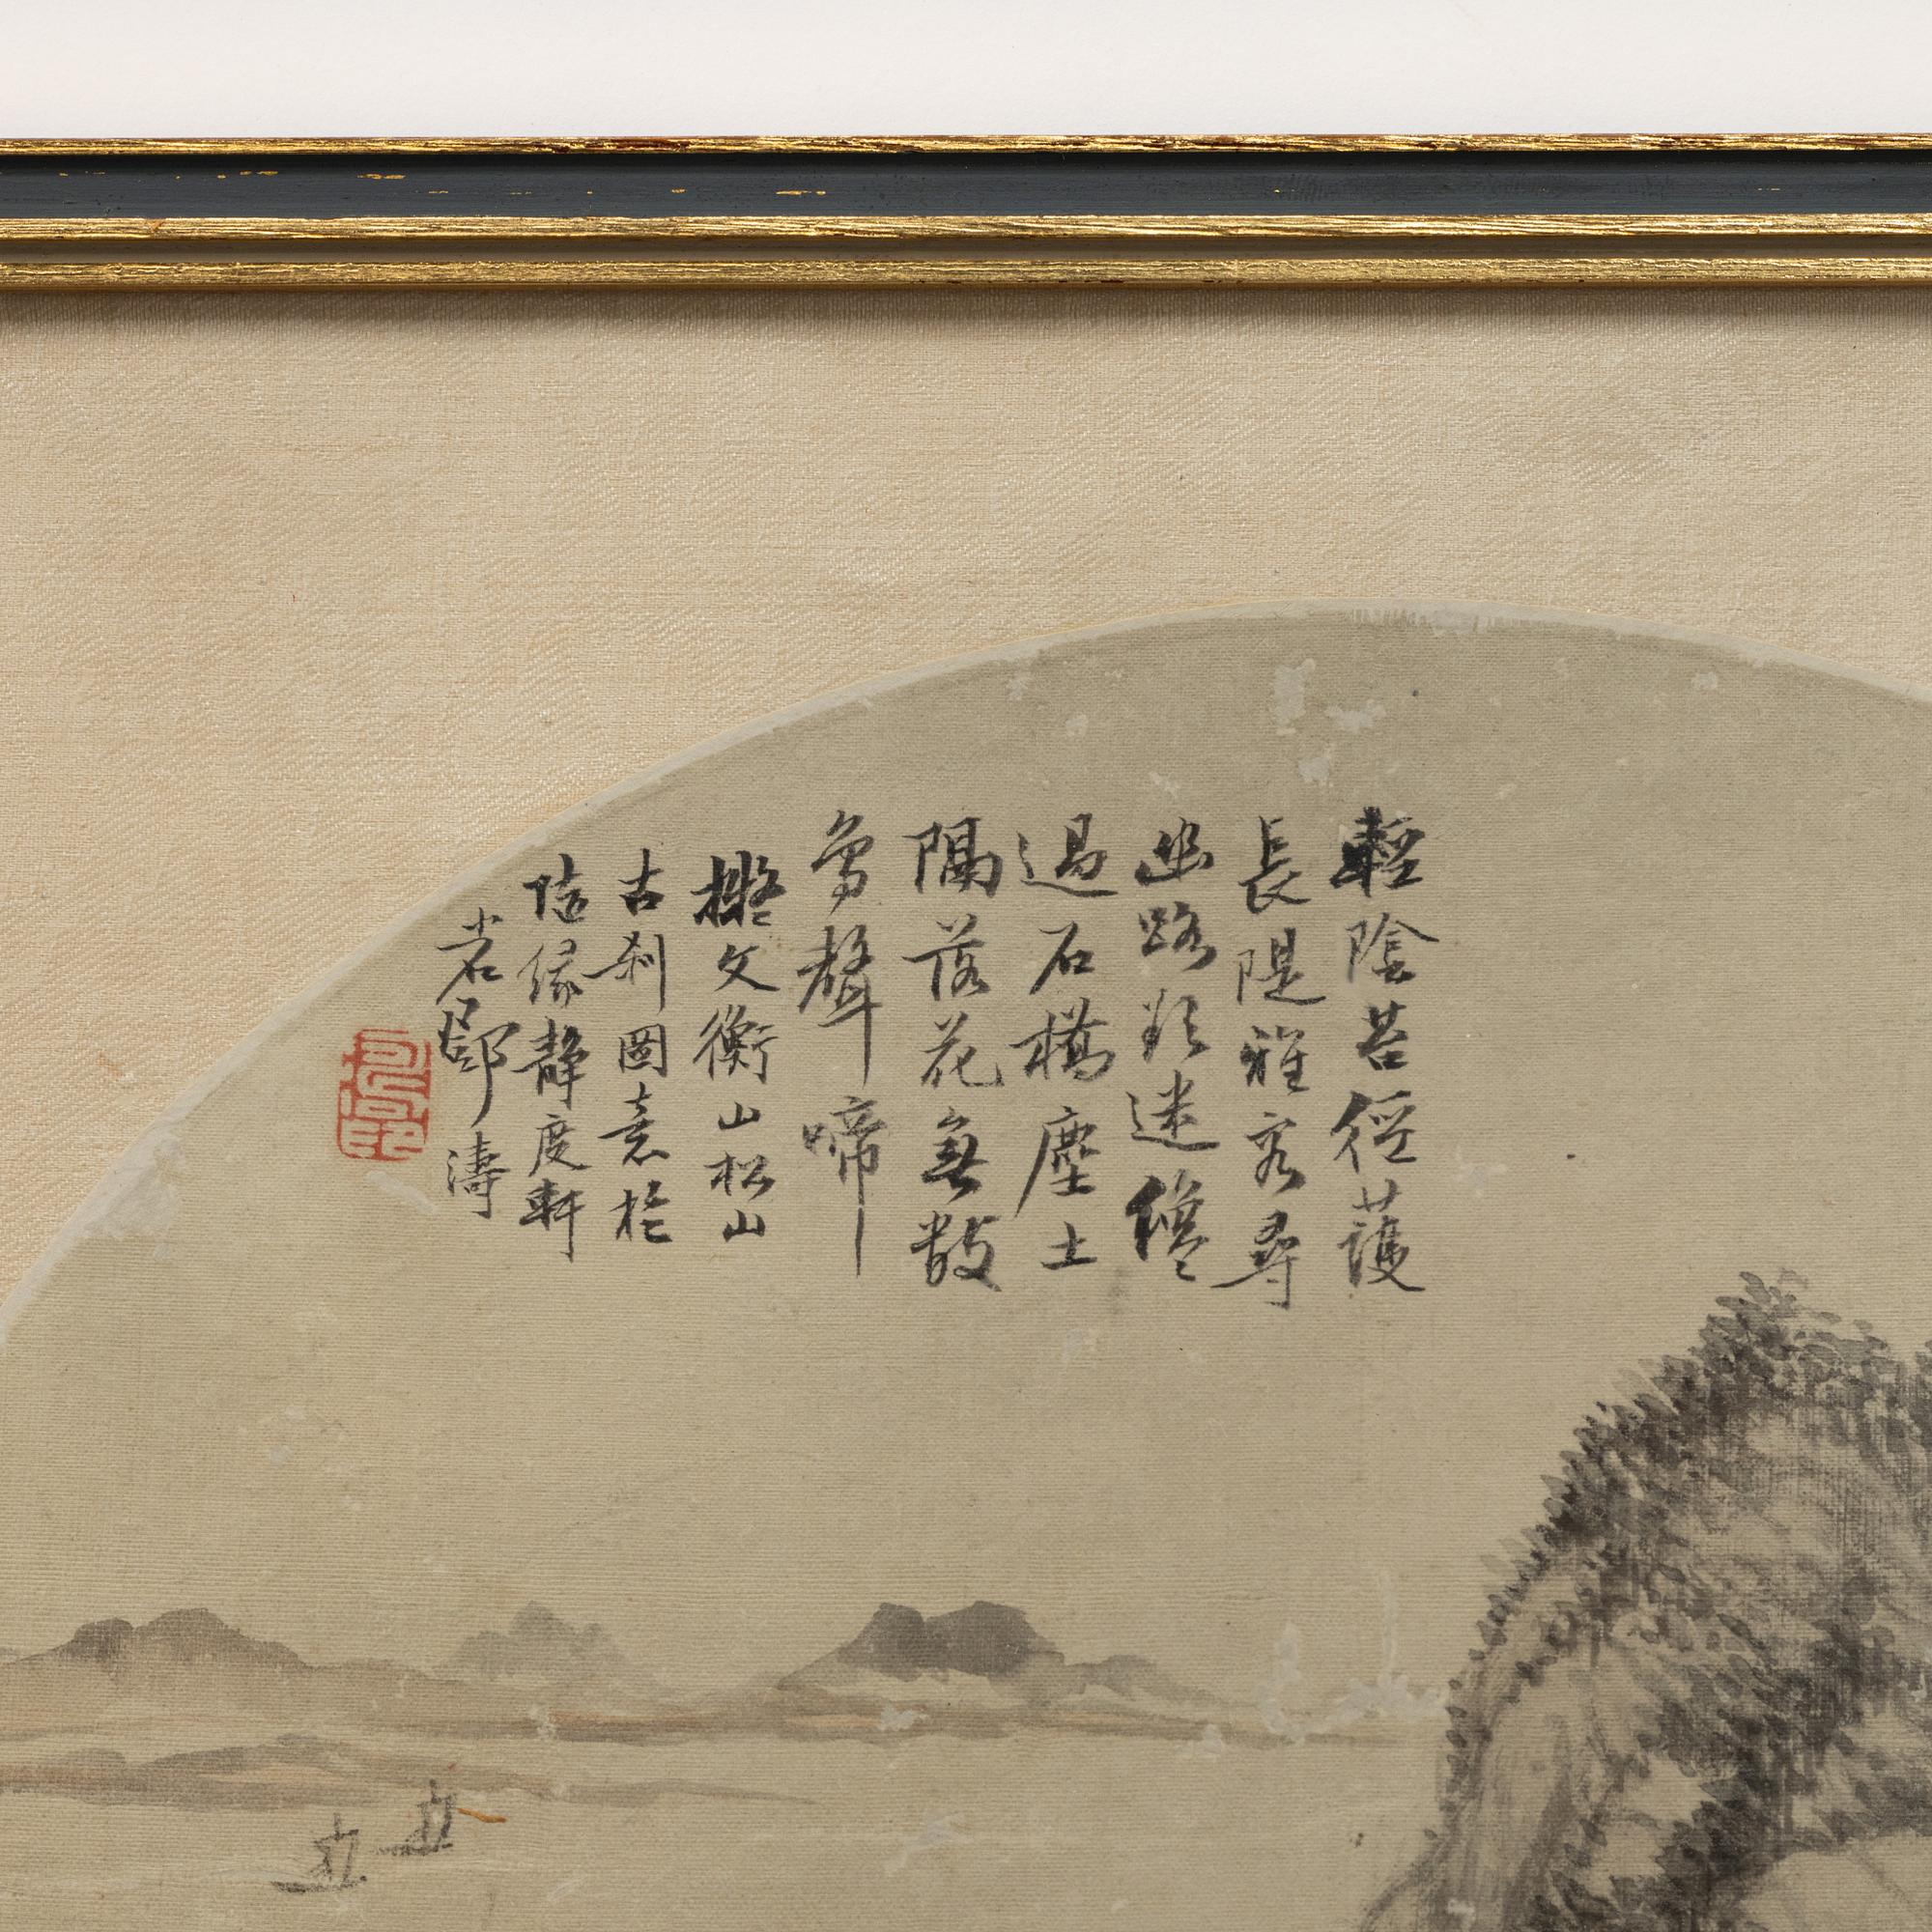 輕陰苔徑護
長隄雅客尋
幽路欲迷僊
過石橋塵土
隔落花無數
鳥聲啼
擬文衡山松山
古刹圖意於
隨緣靜度軒
若郿濤